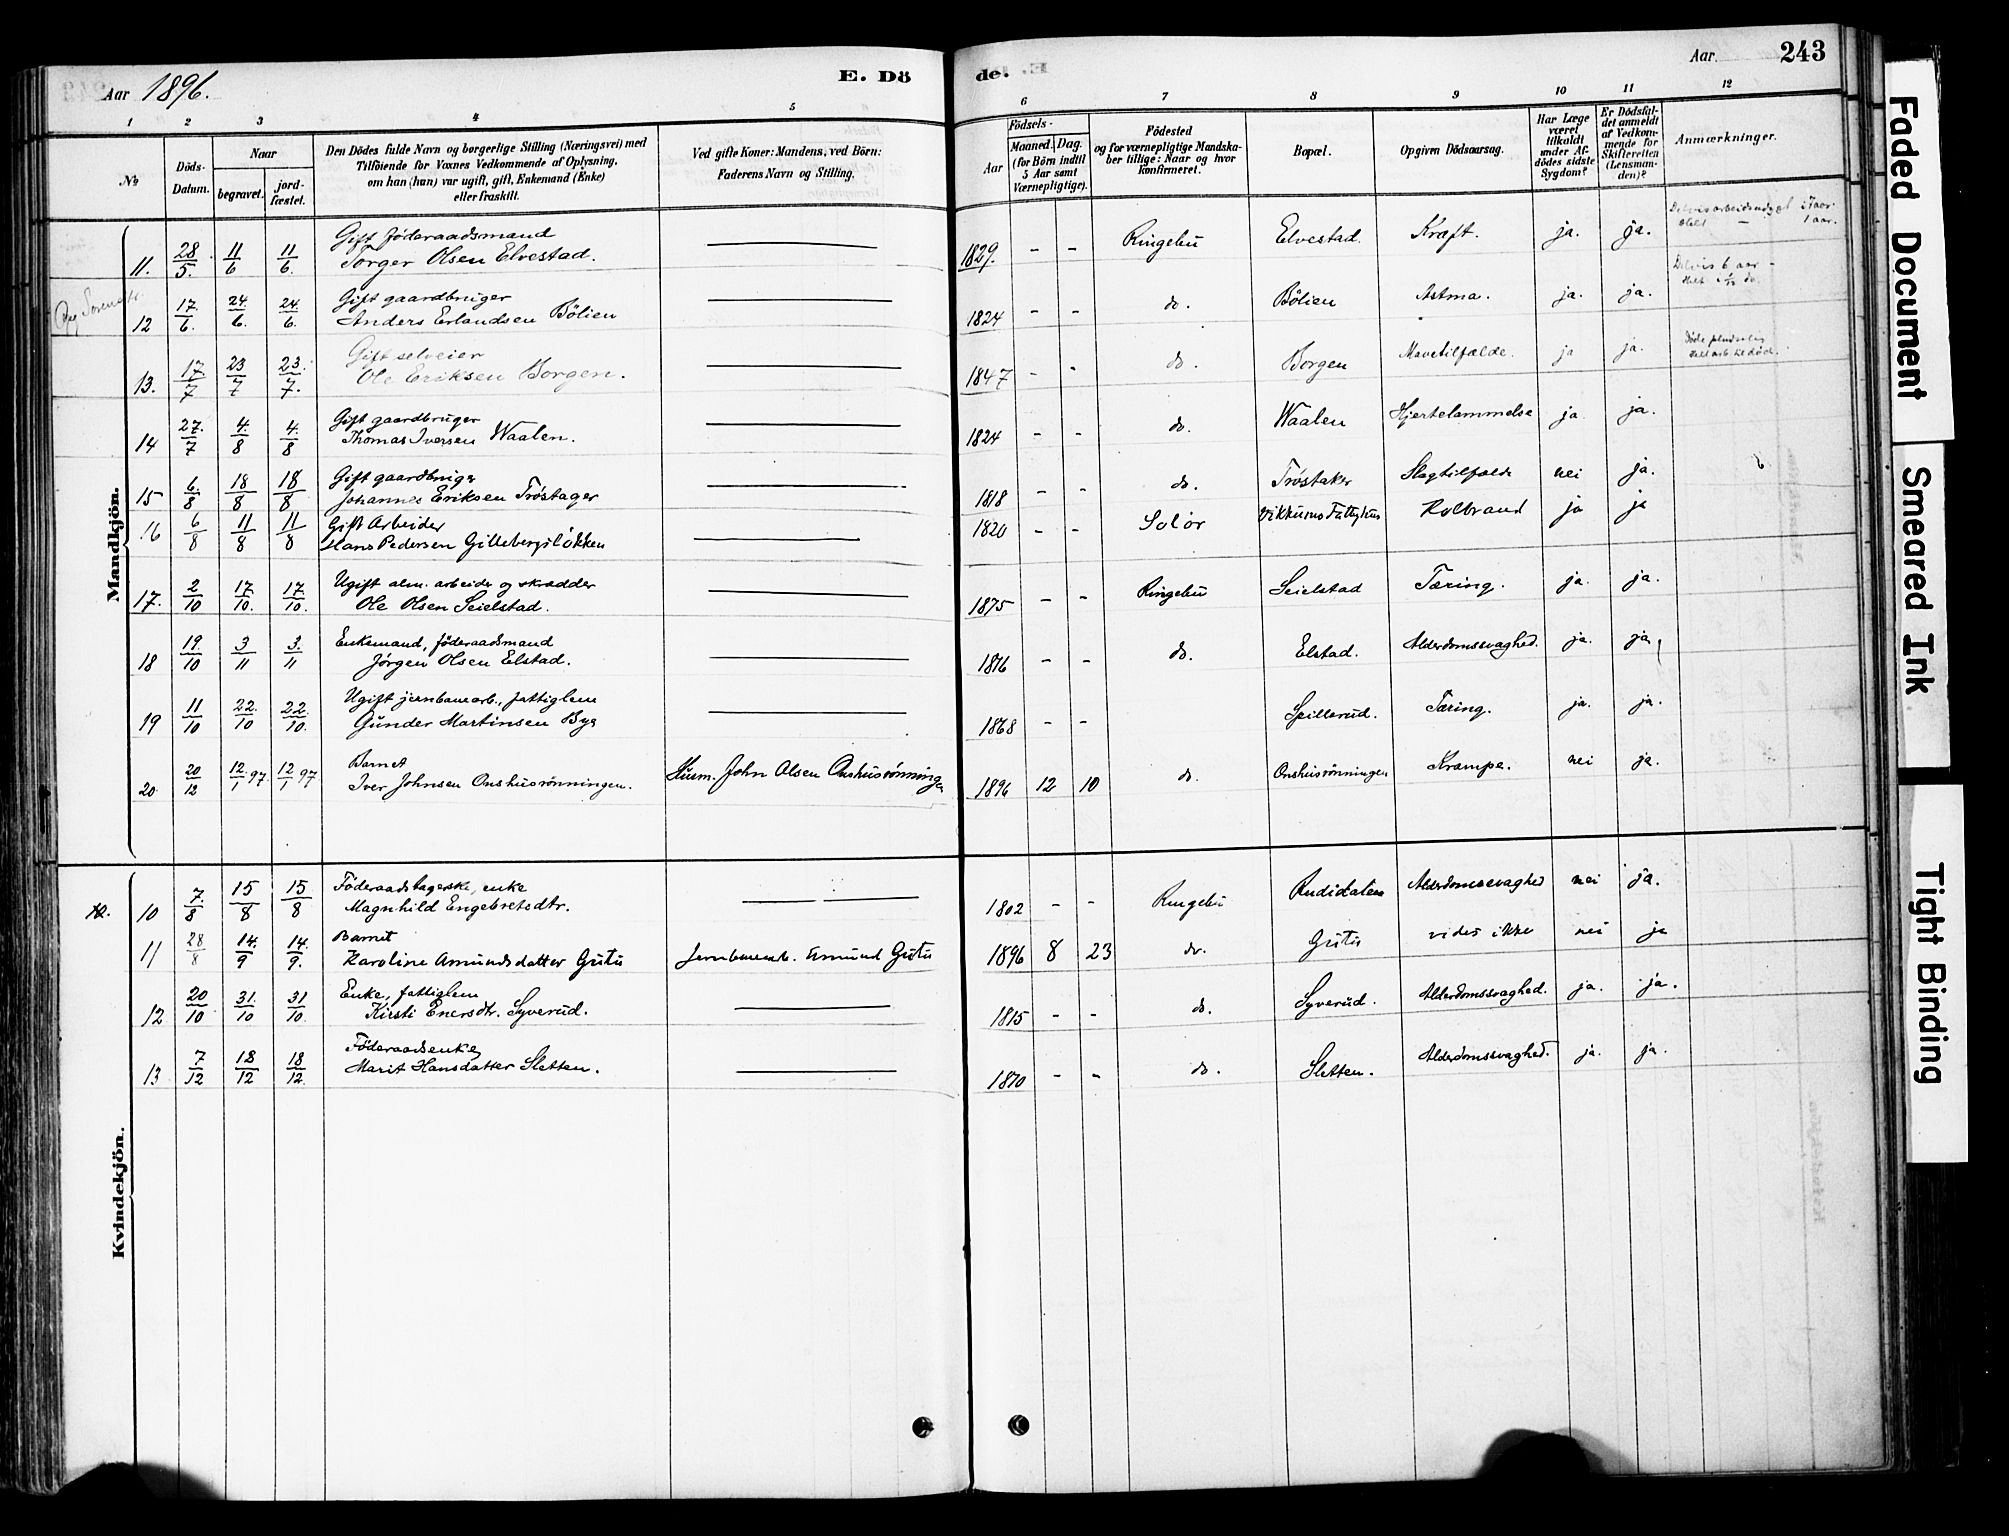 Aar 1896.
E. Dö
de.
Aar.
243
1 2 3 4 5 6 7 8 9 10 11 12
No
Döds-Datum.
Naar
begravet.
jord-fæstet.
Den Dödes fulde Navn og borgerlige Stilling (Næringsvei) med
Tilföiende for Voxnes Vedkommende af Oplysning,
om han (hun) var ugift, gift, Enkemand (Enke)
eller fraskilt.
Ved gifte Koner: Mandens, ved Börn:
Faderens Navn og Stilling.
Födsels-
Aar
Maaned. Dag.
(for Börn indtil
5 Aar samt
Værnepligtige).
Födested
og for værnepligtige Mandska-
ber tillige: Naar og hvor
konfirmeret.
Bopæl.
Opgiven Dödsaarsag.
Har Læge
været
tilkaldt
under Af-
dödes sidste
Sygdom?
Er Dödsfal-
det anmeldt
af Vedkom-
mende for
Skifteretten
(Lensman-
den)?
Anmærkninger.
Mandkjön.
11. 28/5. 11/6 11/6. Gift föderaadsmand
Torger Olsen Elvestad. 1829. - - Ringebu Elvestad. Kræft. ja. ja.
12 17/6. 24./6. 24./6. Gift gaardbruger
Anders Erlandsen Bölien 1824 - - do. Bölien Astma. ja. ja.
13. 17/7 23/7 23./7. Gift selveier
Ole Eriksen Borgen. 1847 - - do. Borgen Mavetilfælde. ja ja.
14 27./7 4./8 4./8 Gift gaardbruger
Thomas Iversen Waalen. 1824 - - do. Waalen Hjertelammelse ja ja.
15 6/8 18/8 18/8 Gift gaardbruger
Johannes Eriksen Tröstager 1818 - - do. Tröstaker Slagtilfælde nei ja.
16 6/8 11/8 11/8 Gift Arbeider
Hans Pedersen Gillebergslökken 1820 - - Solør Kolbrand ja ja
17. 2/10 17./10. 17./10. Ugift alm. arbeider og skrædder
Ole Olsen Seielstad. 1875 - - Ringebu Seielstad Tæring. ja. ja.
18 19./10 3/11 3./11 Enkemand, föderaadsmand
Jörgen Olsen Elstad. 1816 - - do. Elstad. Alderdomssvaghed. ja. ja
19 11/10 22./10 22./10. Ugift jernbanearb., fattiglem
Gunder Martinsen Bye 1868 - - Spillerud. Tæring. ja. ja.
20 20/12 12./1 97 12/1 97 Barnet
Iver Johnsen Onshusrönningen. Husm. John Olsen Onshusrönningen 1896 12 10 do. Onshusrönningen Krampe. nei ja.
Kvindekjön.
10 7/8 15/8 15/8 Föderaadstagerske, enke
Magnhild Engebretsdtr. 1802 - - Ringebu Alderdomssvaghed nei ja.
11 28/8 14./9 14./9. Barnet
Karoline Amundsdatter Gutu Jernbanearb. Amund Gutu 1896 8 23 do. Gutu vides ikke nei ja
12 20/10 31./10 31/10. Enke, fattiglem
Kirsti Enersdtr. Syverud. 1815 - - do. Syverud. Alderdomssvaghed. ja. ja.
13 7/12 18/12 18/12. Föderaadsenke
Marit Hansdatter Sletten. 1810 - - do. Sletten. Alderdomssvaghed. ja. ja.
Faded Document
Smeared Ink
Tight Binding